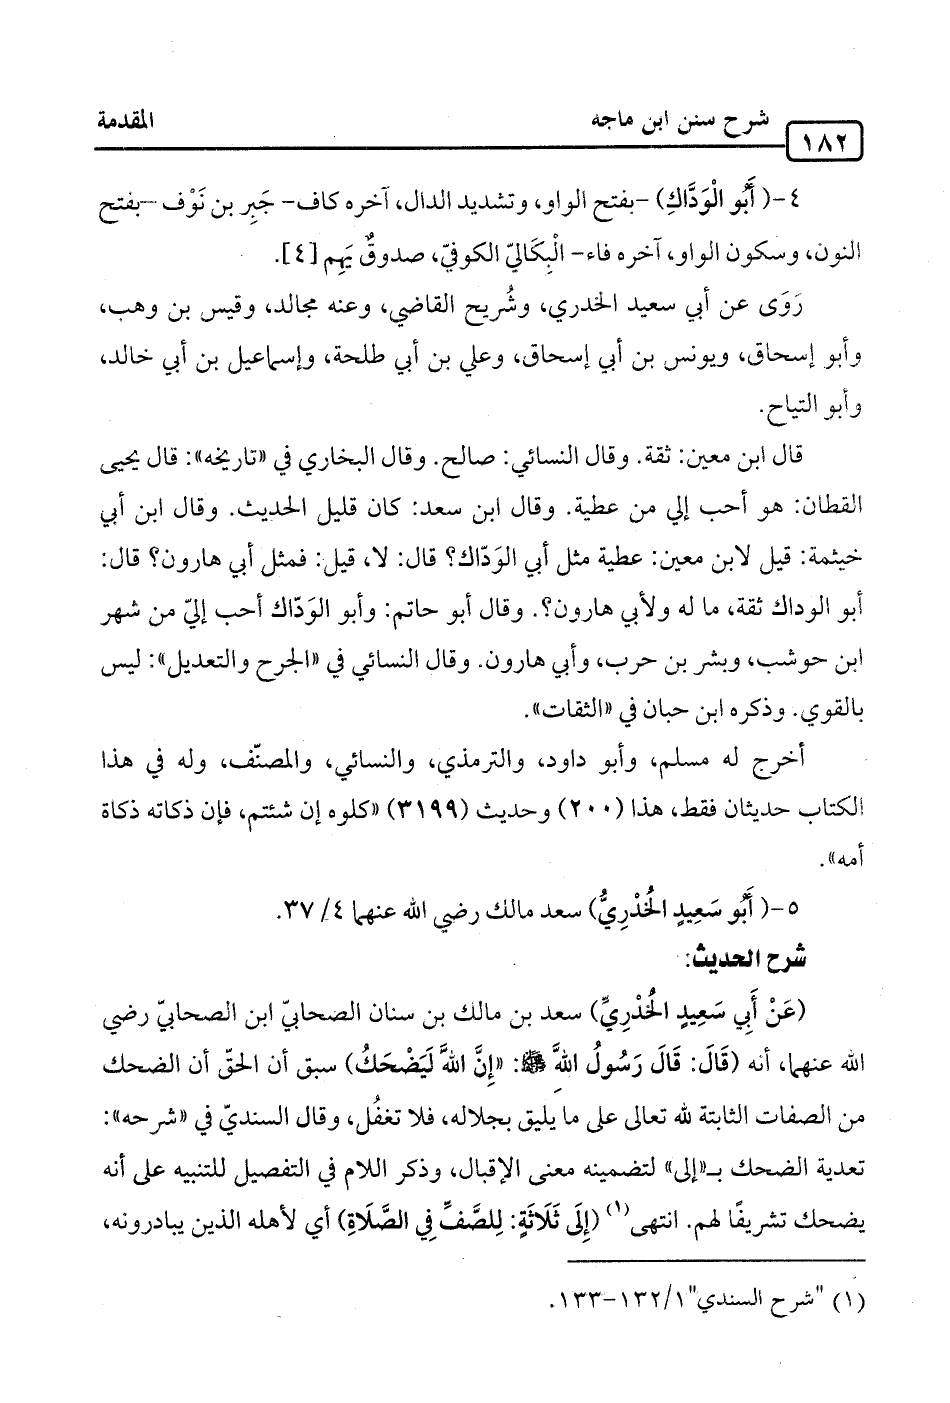 شرح سنن ابن ماجه
المقدمة
١٨٢
٤-(أَبُو الْوَدَّاكِ) -بفتح الواو، وتشديد الدال، آخره كاف- جَبِر بن نَوْف -بفتح
النون، وسكون الواو، آخره فاء- الْبِكَاليّ الكوفيّ، صدوقٌ يَهِم [٤].
رَوَى عن أبي سعيد الخدري، وشُريح القاضي، وعنه مجالد، وقيس بن وهب،
وأبو إسحاق، ويونس بن أبي إسحاق، وعلي بن أبي طلحة، وإسماعيل بن أبي خالد،
وأبو التياح.
قال ابن معين: ثقة. وقال النسائي: صالح. وقال البخاري في «تاريخه»: قال يحيى
القطان: هو أحب إلي من عطية. وقال ابن سعد: كان قليل الحديث. وقال ابن أبي
خيثمة: قيل لابن معين: عطية مثل أبي الوَدّاك؟ قال: لا، قيل: فمثل أبي هارون؟ قال:
أبو الوداك ثقة، ما له ولأبي هارون؟. وقال أبو حاتم: وأبو الوَدّاك أحب إليّ من شهر
ابن حوشب، وبشر بن حرب، وأبي هارون. وقال النسائي في «الجرح والتعديل»: ليس
بالقوي. وذكره ابن حبان في «الثقات».
أخرج له مسلم، وأبو داود، والترمذي، والنسائي، والمصنّف، وله في هذا
الكتاب حديثان فقط، هذا (٢٠٠) وحديث (٣١٩٩) «كلوه إن شئتم، فإن ذكاته ذكاة
أمه».
٥-(أَبُو سَعِيدٍ الْخُدْرِيُّ) سعد مالك رضي الله عنهما ٤/ ٣٧.
شرح الحديث:
(عَنْ أَبِي سَعِيدٍ الْخُدْرِيِّ) سعد بن مالك بن سنان الصحابيّ ابن الصحابيّ رضي
الله عنهما، أنه (قَالَ: قَالَ رَسُولُ اللهِ ﷺ: «إِنَّ اللهَ لَيَضْحَكُ) سبق أن الحقّ أن الضحك
من الصفات الثابتة لله تعالى على ما يليق بجلاله، فلا تغفُل، وقال السنديّ في «شرحه»:
تعدية الضحك بـ«إلى» لتضمينه معنى الإقبال، وذكر اللام في التفصيل للتنبيه على أنه
يضحك تشريفًا لهم. انتهى(١) (إِلَى ثَلَاثَةٍ: لِلصَّفِّ فِي الصَّلَاةِ) أي لأهله الذين يبادرونه،
(١) "شرح السندي" ١/ ١٣٢-١٣٣.